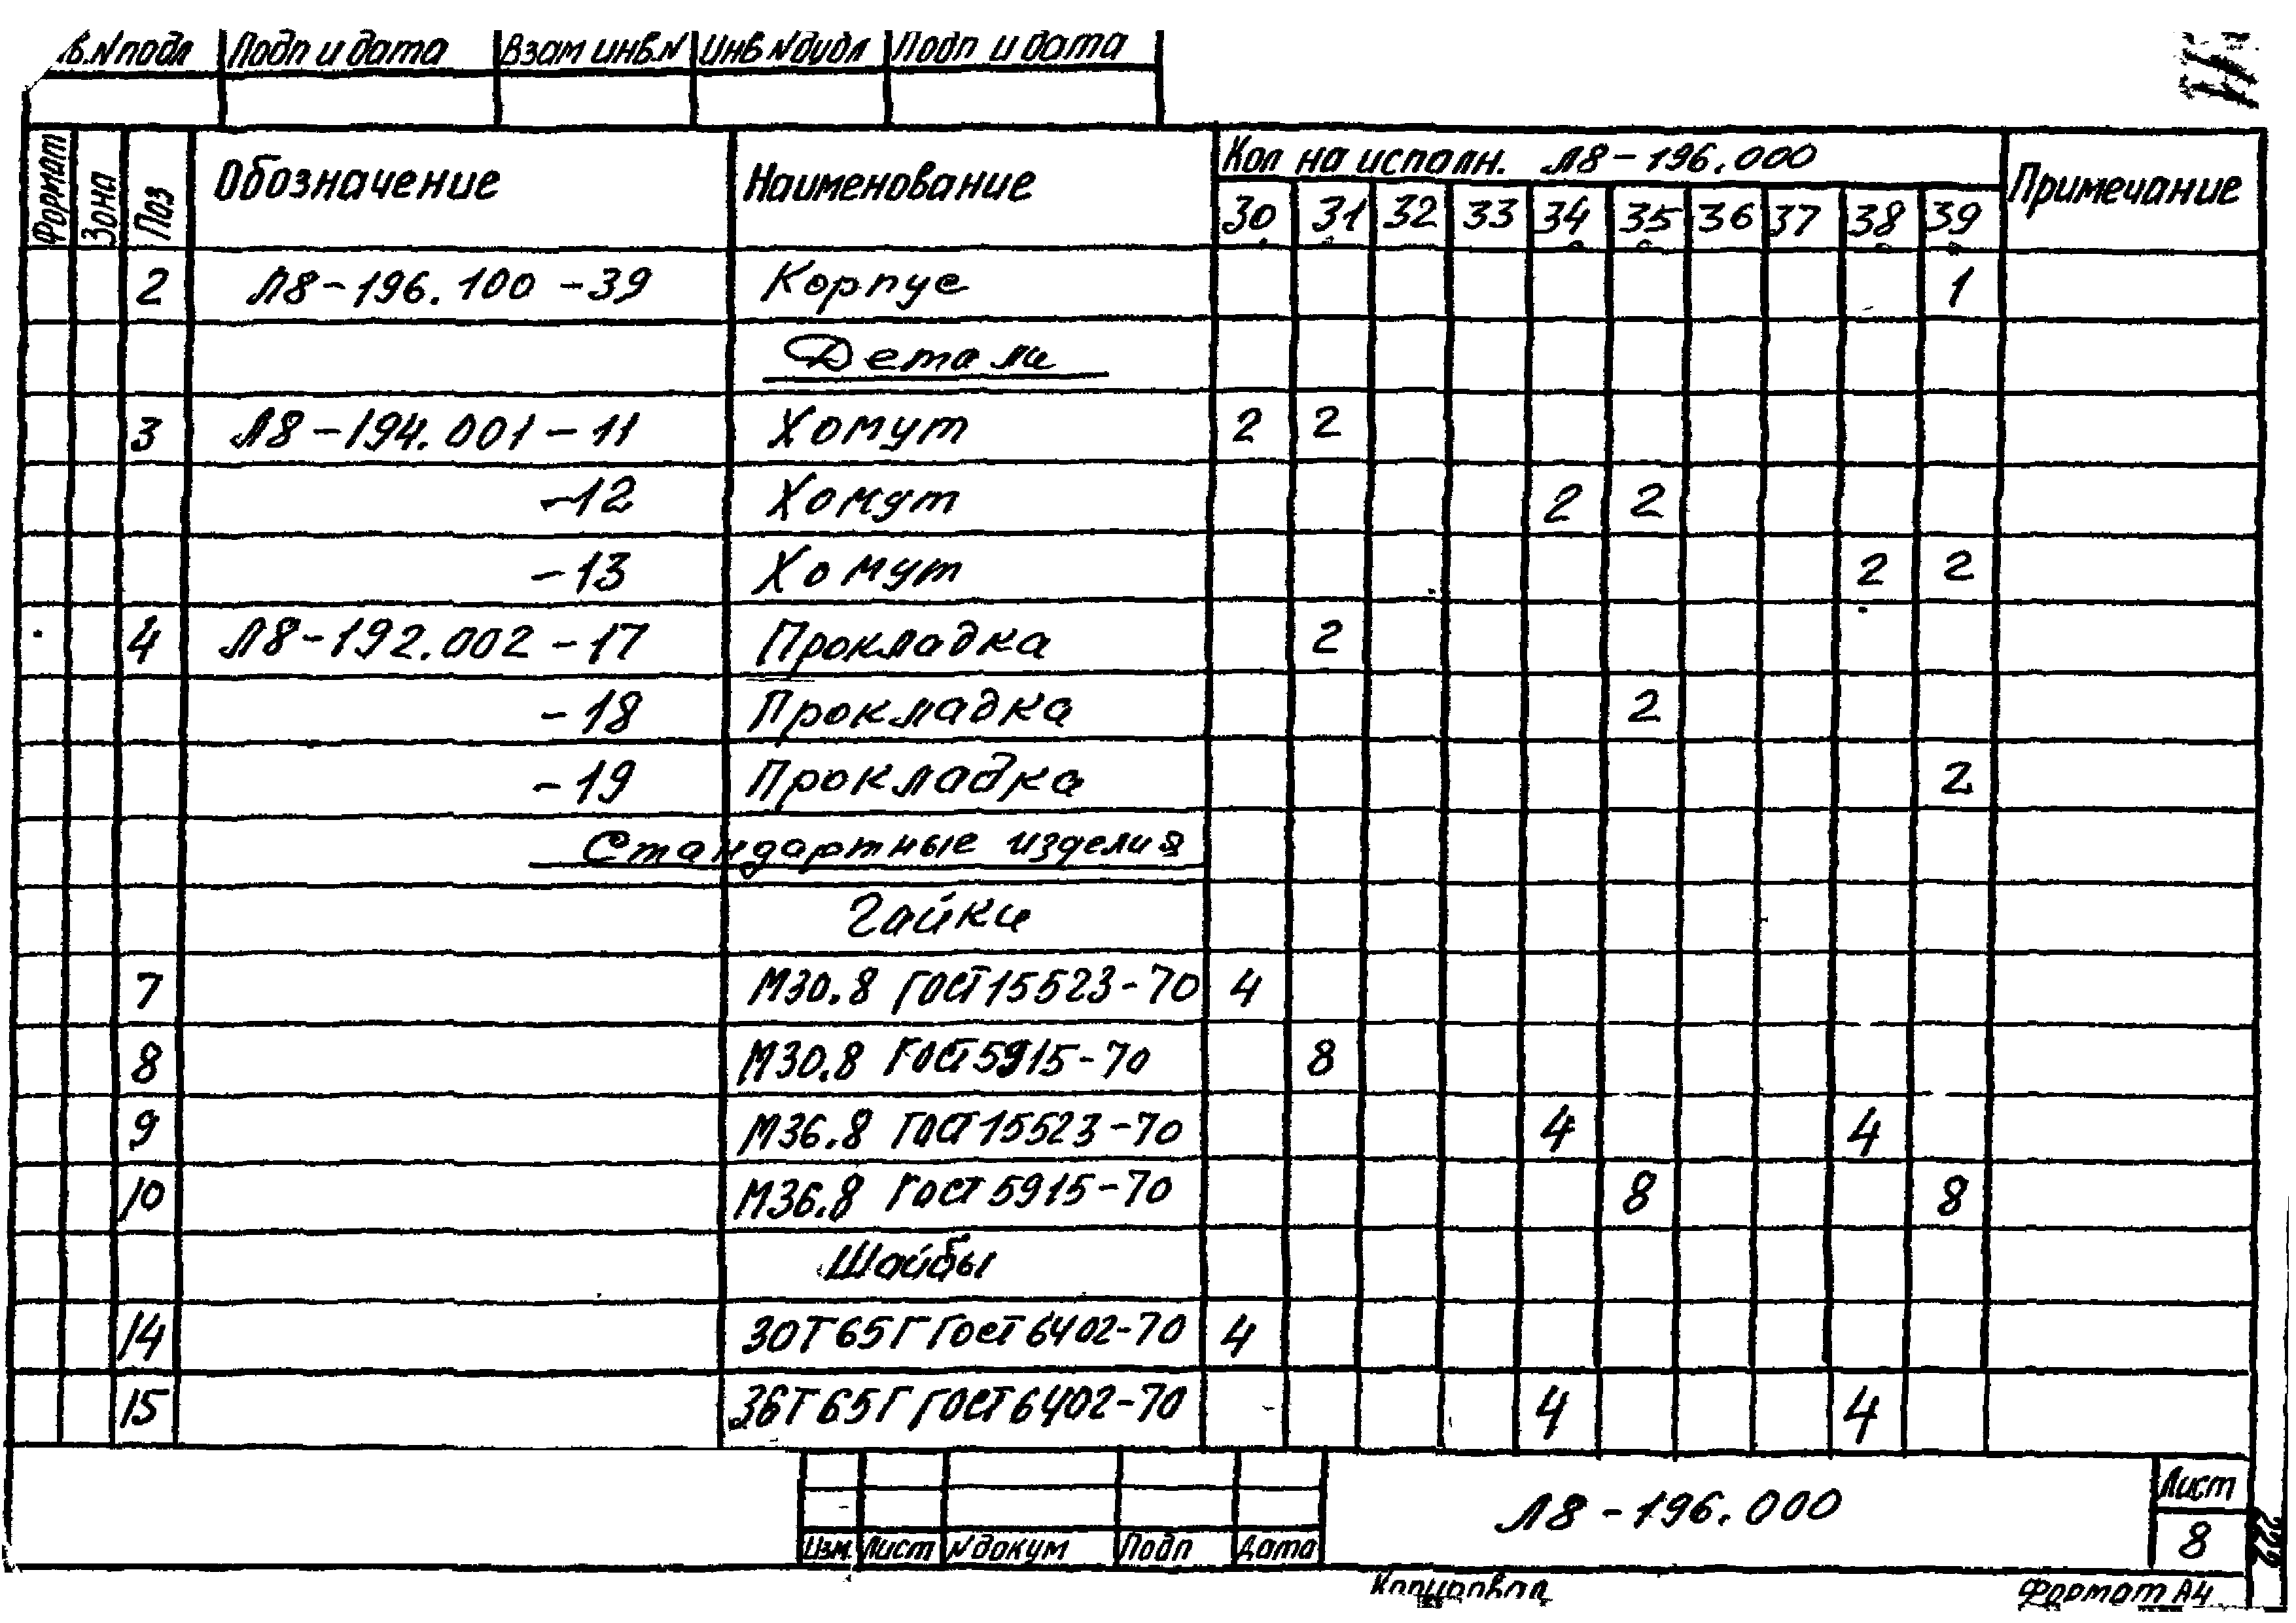 в.N подл Подп и дата Взам инв.N Инв Nдубл Подп и дата
Формат Зона Поз Обозначение Наименование Кол на исполн. Л8-196.000 Примечание
30 31 32 33 34 35 36 37 38 39
2 Л8-196.100 -39 Корпус 1
Детали
3 Л8-194.001-11 Хомут 2 2
-12 Хомут 2 2
-13 Хомут 2 2
4 Л8-192.002 -17 Прокладка 2
-18 Прокладка 2
-19 Прокладка 2
Стандартные изделия
Гайки
7 М30.8 ГОСТ 15523-70 4
8 М30.8 ГОСТ 5915-70 8
9 М36.8 ГОСТ 15523-70 4 4
10 М36.8 ГОСТ 5915-70 8 8
Шайбы
14 30Т 65Г ГОСТ 6402-70 4
15 36Т 65Г ГОСТ 6402-70 4 4
Изм. Лист N докум Подп Дата
Л8-196.000
Лист
8
22
Копировал Формат А4